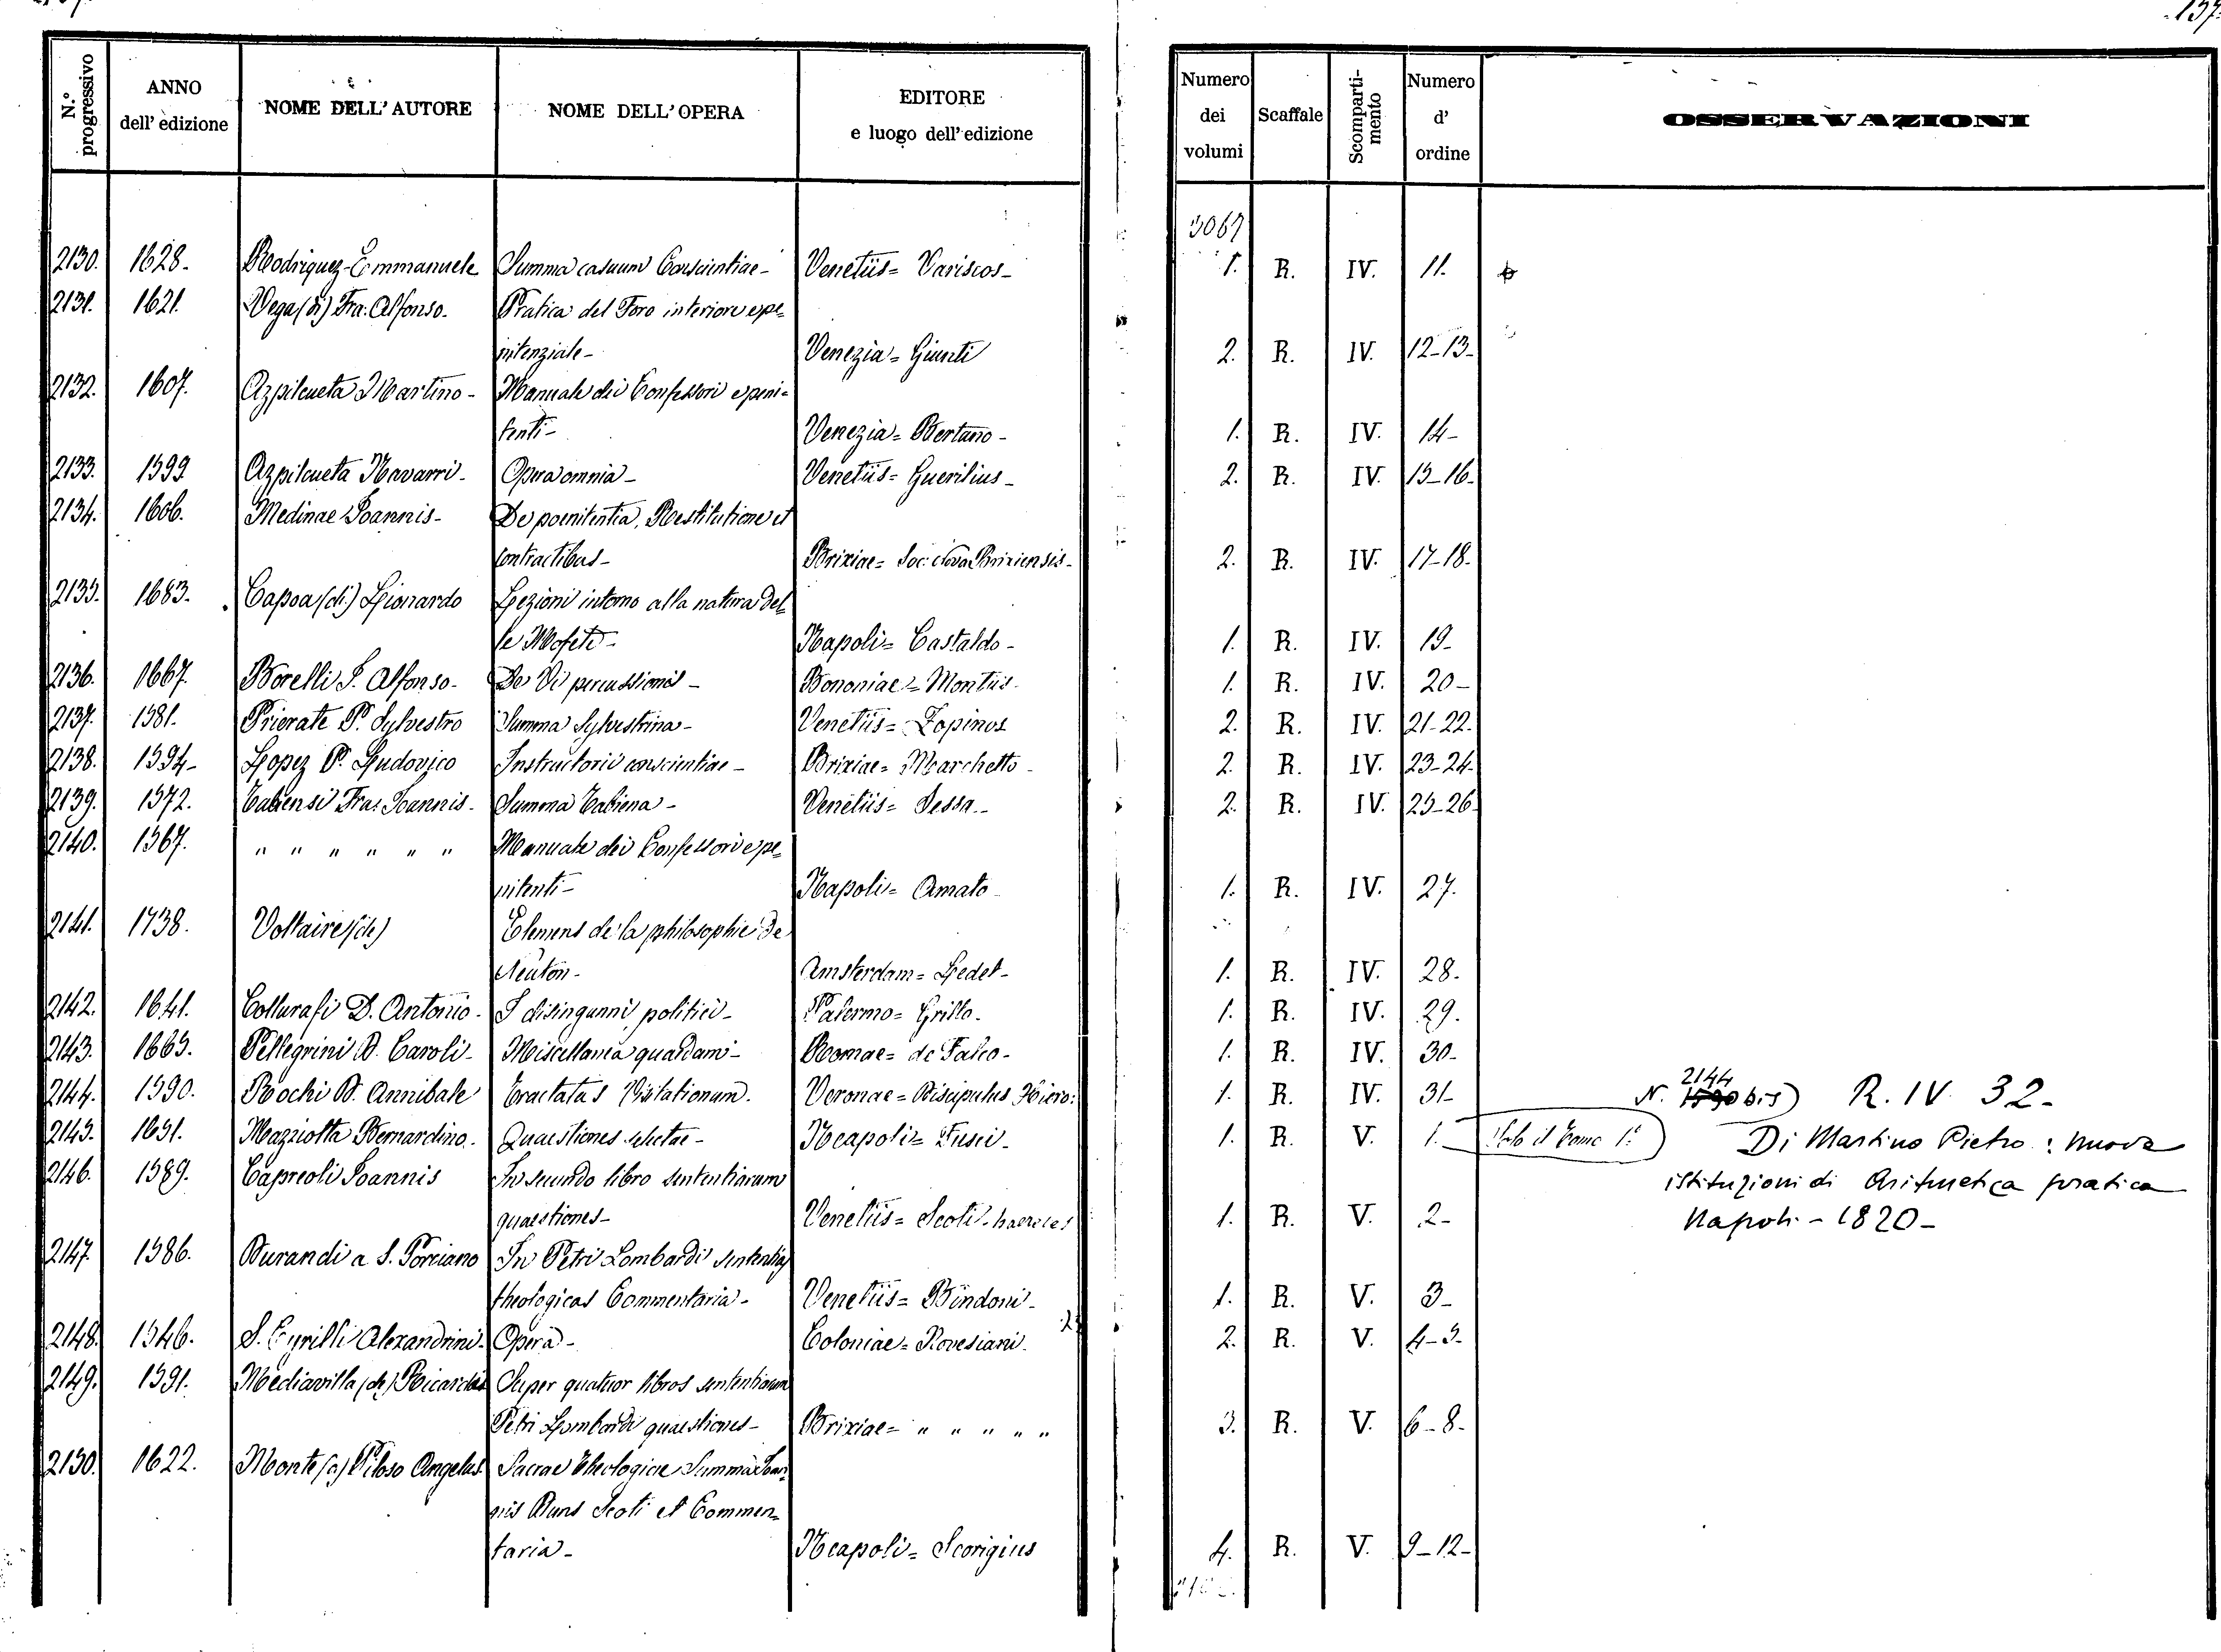 137.
N.° progressivo
ANNO dell' edizione
NOME DELL' AUTORE
NOME DELL' OPERA
EDITORE e luogo dell' edizione
Numero dei volumi
Scaffale
Scomparti-mento
Numero d' ordine
OSSERVAZIONI
3067
2130. 1628. Rodriguez-Emmanuele Summa casuum Conscientiae- Venetiis= Variscos- 1. R. IV. 11.
2131. 1621. Vega (di) Fra: Alfonso. Pratica del Foro interiore e pe=
nitenziale- Venezia= Giunti 2. R. IV. 12-13-
2132. 1607. Azpilcueta Martino- Manuale dei Confessori e peni=
tenti- Venezia= Bertano- 1. R. IV. 14-
2133. 1599 Azpilcueta Navarri- Opera omnia- Venetiis= Guerilius- 2. R. IV. 15-16-
2134. 1606. Medinae Joannis- De poenitentia, Restitutione et
contractibus- Brixiae= Soc: Nova Brixiensis- 2. R. IV. 17-18-
2135. 1683. Capoa (di) Lionardo Lezioni intorno alla natura del=
le Mofete- Napoli= Castaldo- 1. R. IV. 19-
2136. 1667. Borelli J. Alfonso- De Vi percussionis- Bononiae= Montiis- 1. R. IV. 20-
2137. 1581. Prierate P. Sylvestro Summa Sylvestrina- Venetiis= Zopinos 2. R. IV. 21-22.
2138. 1594- Lopez P. Ludovico Instructorii conscientiae- Brixiae= Marchetto- 2. R. IV. 23-24-
2139. 1572. Tabiensi Fra: Joannis- Summa Tabiena- Venetiis= Sessa- 2. R. IV. 25-26-
2140. 1567. " " " " " " Manuale dei Confessori e pe=
nitenti- Napoli= Amato- 1. R. IV. 27.
2141. 1738. Voltaire (de) Elemens de la philosophie de
Neuton- Amsterdam= Ledet- 1. R. IV. 28.
2142. 1641. Collurafi D. Antonio- I disinganni politici- Palermo= Grillo- 1. R. IV. 29.
2143. 1665. Pellegrini D. Caroli- Miscellanea quaedam- Romae= de Falco- 1. R. IV. 30-
2144. 1590. Rochi D. Annibale Tractatus Visitationum. Veronae= Discipulus Hiero: 1. R. IV. 31- N. 2144 bis) R. IV. 32-
2145. 1651. Mazziotta Bernardino. Quaestiones selectae- Neapoli= Fusci- 1. R. V. 1. Solo il Tomo 1° Di Martino Pietro: nuove
2146. 1589. Capreoli Joannis In secundo libro sententiarum istituzioni di Aritmetica pratica
quaestiones- Venetiis= Scoti-haeredes 1. R. V. 2- Napoli- 1820-
2147. 1586. Durandi a S. Porciano In Petri Lombardi sententias
theologicas Commentaria- Venetiis= Bindoni- 1. R. V. 3-
2148. 1546. S. Cyrilli Alexandrini- Opera- Coloniae= Novesiani. 2. R. V. 4-5-
2149. 1591. Mediavilla (de) Ricardus Super quatuor libros sententiarum
Petri Lombardi quaestiones- Brixiae= " " " " " 3. R. V. 6-8-
2150. 1622. Monte (a) Piloso Angelus Sacrae Theologiae Summa Joan=
nis Duns Scoti et Commen=
taria- Neapoli= Scorigius 4. R. V. 9-12-